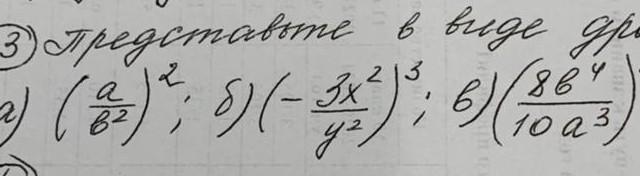 3) Представьте в виде др
а) (a/b²)²; б) (-3x²/y²)³; в) (8b⁴/10a³)